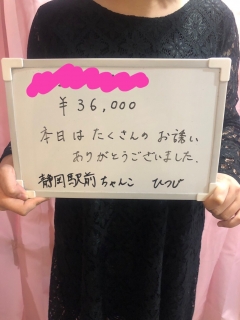 ¥36,000
本日はたくさんのお誘い
ありがとうございました.
静岡駅前ちゃんこ ひつじ